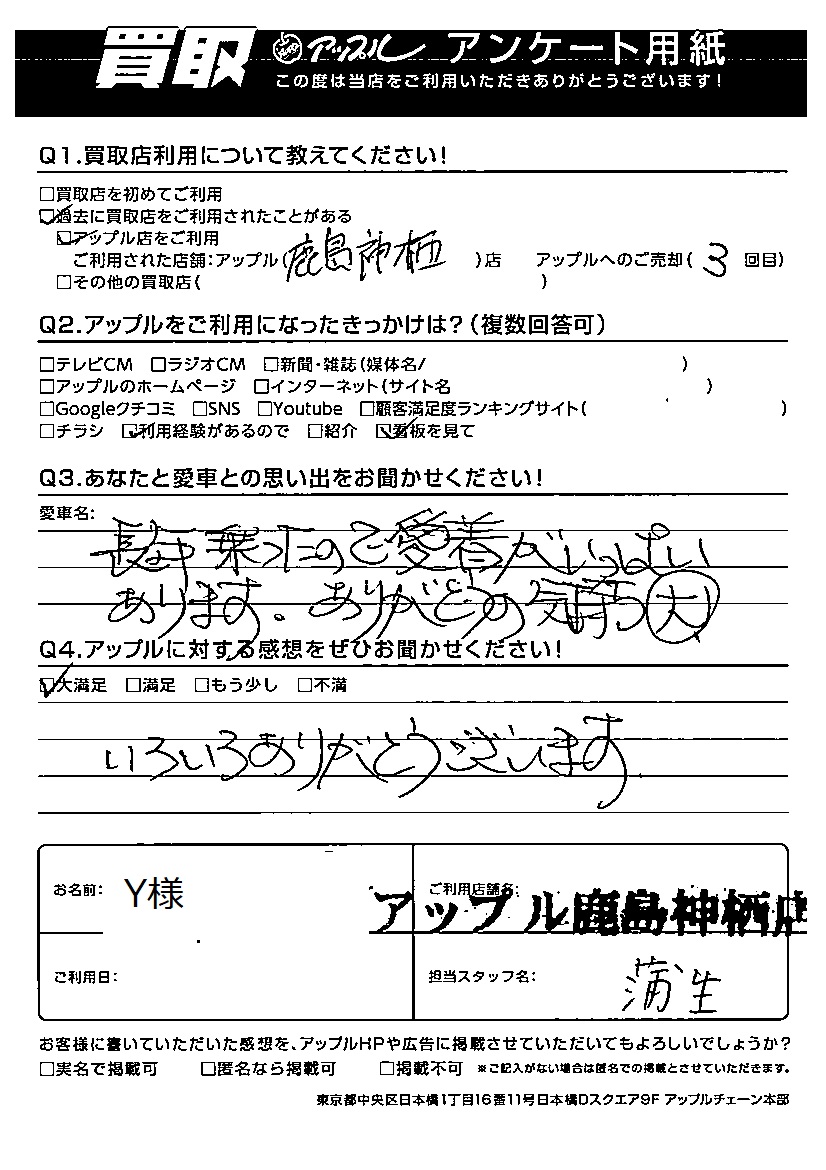 買取 アップル アンケート用紙
この度は当店をご利用いただきありがとうございます!
Q1.買取店利用について教えてください!
□買取店を初めてご利用
☑過去に買取店をご利用されたことがある
☑アップル店をご利用
ご利用された店舗:アップル(鹿島神栖)店 アップルへのご売却(3回目)
□その他の買取店( )
Q2.アップルをご利用になったきっかけは?(複数回答可)
□テレビCM □ラジオCM □新聞・雑誌(媒体名/ )
□アップルのホームページ □インターネット(サイト名 )
□Googleクチコミ □SNS □Youtube □顧客満足度ランキングサイト( )
□チラシ ☑利用経験があるので □紹介 ☑看板を見て
Q3.あなたと愛車との思い出をお聞かせください!
愛車名:
長年乗ったので愛着がいっぱい
あります。ありがとうの気持ち大
Q4.アップルに対する感想をぜひお聞かせください!
☑大満足 □満足 □もう少し □不満
いろいろありがとうございます
お名前: Y様
ご利用店舗名: アップル鹿島神栖店
ご利用日:
担当スタッフ名: 蒲生
お客様に書いていただいた感想を、アップルHPや広告に掲載させていただいてもよろしいでしょうか?
□実名で掲載可 □匿名なら掲載可 □掲載不可 ※ご記入がない場合は匿名での掲載とさせていただきます。
東京都中央区日本橋1丁目16番11号日本橋Dスクエア9F アップルチェーン本部